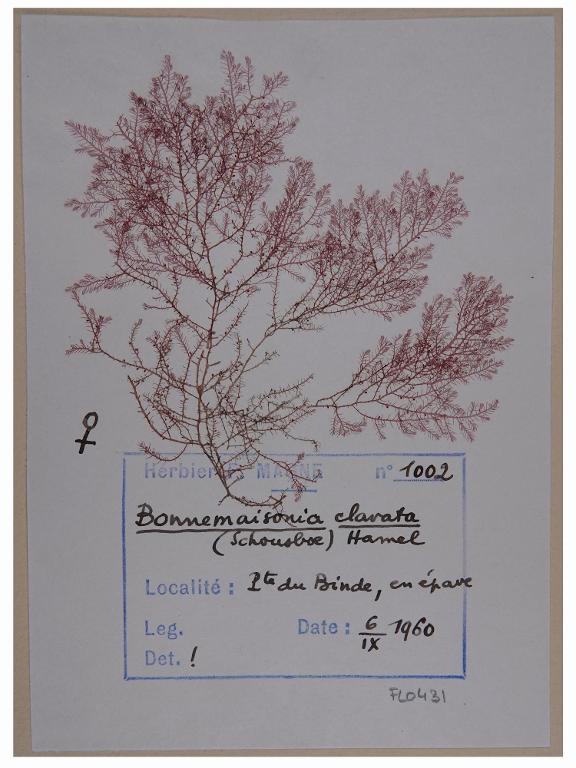 ♀
Herbier F. MAGNE n° 1002
Bonnemaisonia clavata
(Schousboe) Hamel
Localité : Pte du Binde, en épave
Leg. Date : 6/IX 1960
Det. !
FL0431